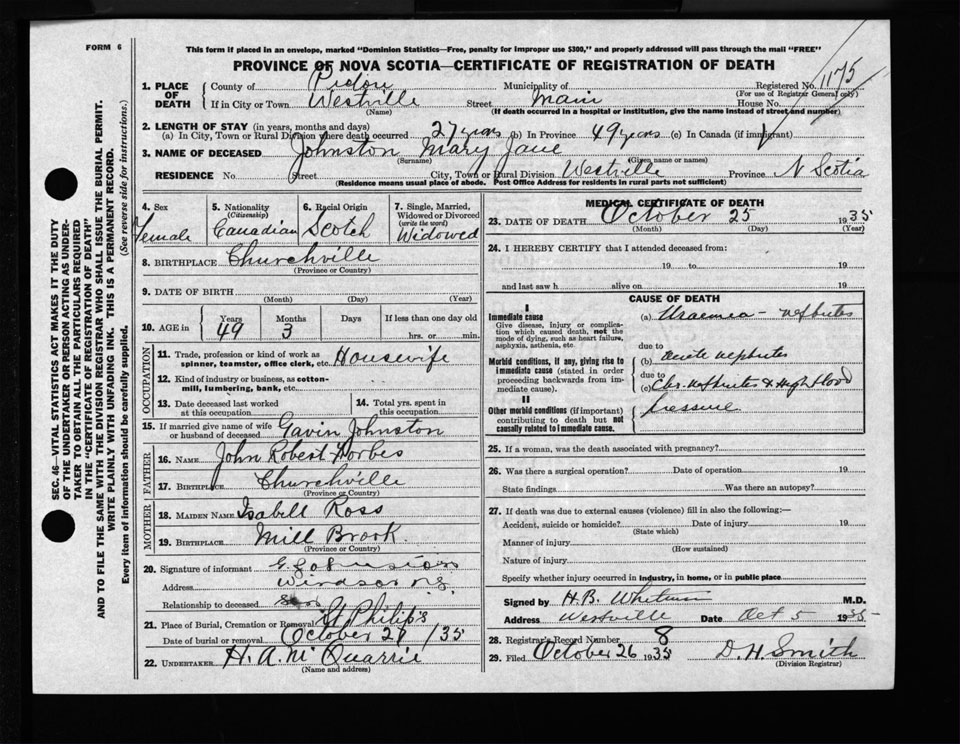 FORM 6
This form if placed in an envelope, marked "Dominion Statistics—Free, penalty for improper use $300," and properly addressed will pass through the mail "FREE"
PROVINCE OF NOVA SCOTIA—CERTIFICATE OF REGISTRATION OF DEATH
1175
1. PLACE OF DEATH
County of Pictou Municipality of Registered No.
(For use of Registrar General only)
If in City or Town Westville Street Main House No.
(Name) (If death occurred in a hospital or institution, give the name instead of street and number)
2. LENGTH OF STAY (in years, months and days)
(a) In City, Town or Rural Division where death occurred 27 years (b) In Province 49 years (c) In Canada (if immigrant)
3. NAME OF DECEASED Johnston Mary Jane
(Surname) (Given name or names)
RESIDENCE No. Street City, Town or Rural Division Westville Province N Scotia
(Residence means usual place of abode. Post Office Address for residents in rural parts not sufficient)
4. Sex Female
5. Nationality (Citizenship) Canadian
6. Racial Origin Scotch
7. Single, Married, Widowed or Divorced (write the word) Widowed
8. BIRTHPLACE Churchville
(Province or Country)
9. DATE OF BIRTH
(Month) (Day) (Year)
10. AGE in Years 49 Months 3 Days If less than one day old
hrs. or min.
OCCUPATION
11. Trade, profession or kind of work as spinner, teamster, office clerk, etc. Housewife
12. Kind of industry or business, as cotton-mill, lumbering, bank, etc.
13. Date deceased last worked at this occupation
14. Total yrs. spent in this occupation
15. If married give name of wife or husband of deceased Gavin Johnston
FATHER
16. NAME John Robert Forbes
17. BIRTHPLACE Churchville
(Province or Country)
MOTHER
18. MAIDEN NAME Isabell Ross
19. BIRTHPLACE Mill Brook
(Province or Country)
20. Signature of informant G Johnston
Address Windsor
Relationship to deceased
21. Place of Burial, Cremation or Removal St Philip's
Date of burial or removal October 27 /35
22. UNDERTAKER H. A. McQuarrie
(Name and address)
MEDICAL CERTIFICATE OF DEATH
23. DATE OF DEATH October 25 1935
(Month) (Day) (Year)
24. I HEREBY CERTIFY that I attended deceased from:
19 to 19
and last saw h alive on 19
CAUSE OF DEATH
I
Immediate cause
Give disease, injury or complication which caused death, not the mode of dying, such as heart failure, asphyxia, asthenia, etc.
(a) Uraemia - nephritis
due to
Morbid conditions, if any, giving rise to immediate cause (stated in order proceeding backwards from immediate cause).
(b) acute nephritis
due to
(c) Chr. nephritis & High blood
pressure
II
Other morbid conditions (if important) contributing to death but not causally related to immediate cause.
25. If a woman, was the death associated with pregnancy?
26. Was there a surgical operation? Date of operation 19
State findings Was there an autopsy?
27. If death was due to external causes (violence) fill in also the following:—
Accident, suicide or homicide? Date of injury 19
(State which)
Manner of injury
(How sustained)
Nature of injury
Specify whether injury occurred in industry, in home, or in public place
Signed by H.B. Whitman M.D.
Address Westville Date Oct 5 1935
28. Registrar's Record Number 8
29. Filed October 26 1935 D. H. Smith
(Division Registrar)
SEC. 46—VITAL STATISTICS ACT MAKES IT THE DUTY
OF THE UNDERTAKER OR PERSON ACTING AS UNDER-
TAKER TO OBTAIN ALL THE PARTICULARS REQUIRED
IN THE "CERTIFICATE OF REGISTRATION OF DEATH"
AND TO FILE THE SAME WITH THE DIVISION REGISTRAR WHO SHALL ISSUE THE BURIAL PERMIT.
WRITE PLAINLY WITH UNFADING INK. THIS IS A PERMANENT RECORD.
Every item of information should be carefully supplied. (See reverse side for instructions.)